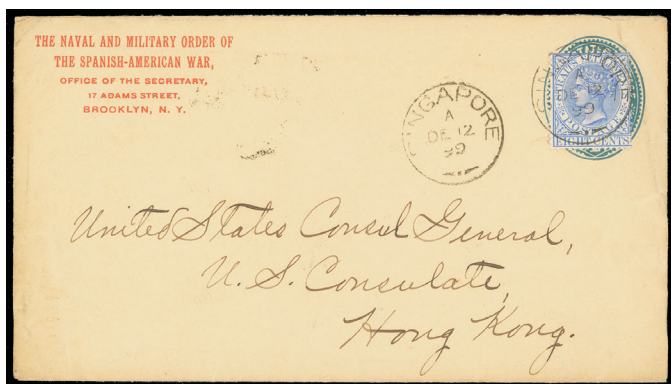 THE NAVAL AND MILITARY ORDER OF
THE SPANISH-AMERICAN WAR,
OFFICE OF THE SECRETARY,
17 ADAMS STREET,
BROOKLYN, N. Y.
SINGAPORE
A
DE 12
99
SINGAPORE
A
DE 12
99
POSTAGE
EIGHT CENTS
United States Consul General,
U. S. Consulate,
Hong Kong.